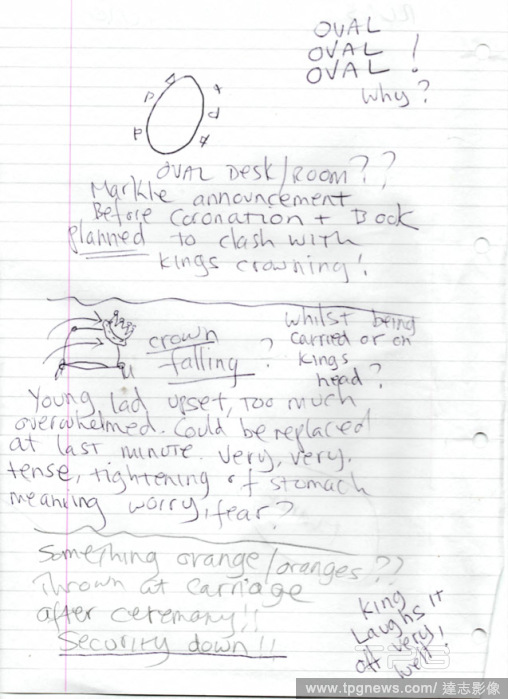 OVAL
OVAL
OVAL !
Why?
OVAL DESK/ROOM??
Markle announcement
Before Coronation + Book
planned to clash with
Kings crowning!
crown
falling ?
whilst being
carried or on
Kings
head?
Young lad upset, too much
overwhelmed. Could be replaced
at last minute. Very, very.
tense, tightening of stomach
meaning worry, fear?
Something orange/oranges??
Thrown at carriage
after ceremony!!
Security down!!
King
Laughs it
off very
well!
www.tpgnews.com/ 達志影像